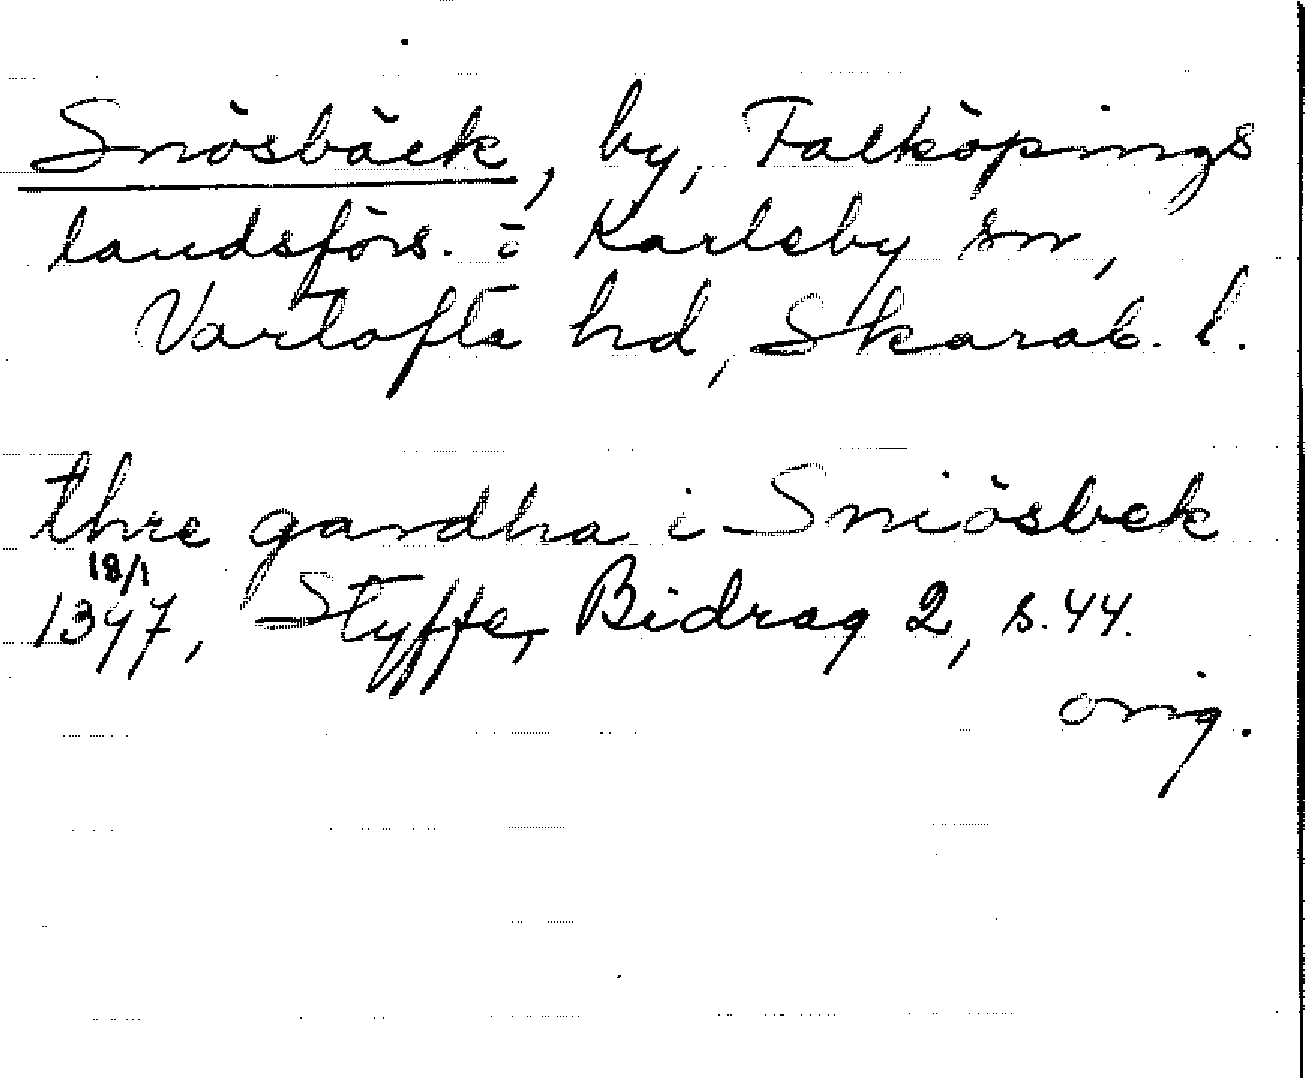 Snösbäck, by, Falköpings
landsförs. i Karleby sn,
Vartofta hd, Skarab. l.
thre gardha i Sniösbek
18/1
1397, Styffe, Bidrag 2, s. 44.
orig.